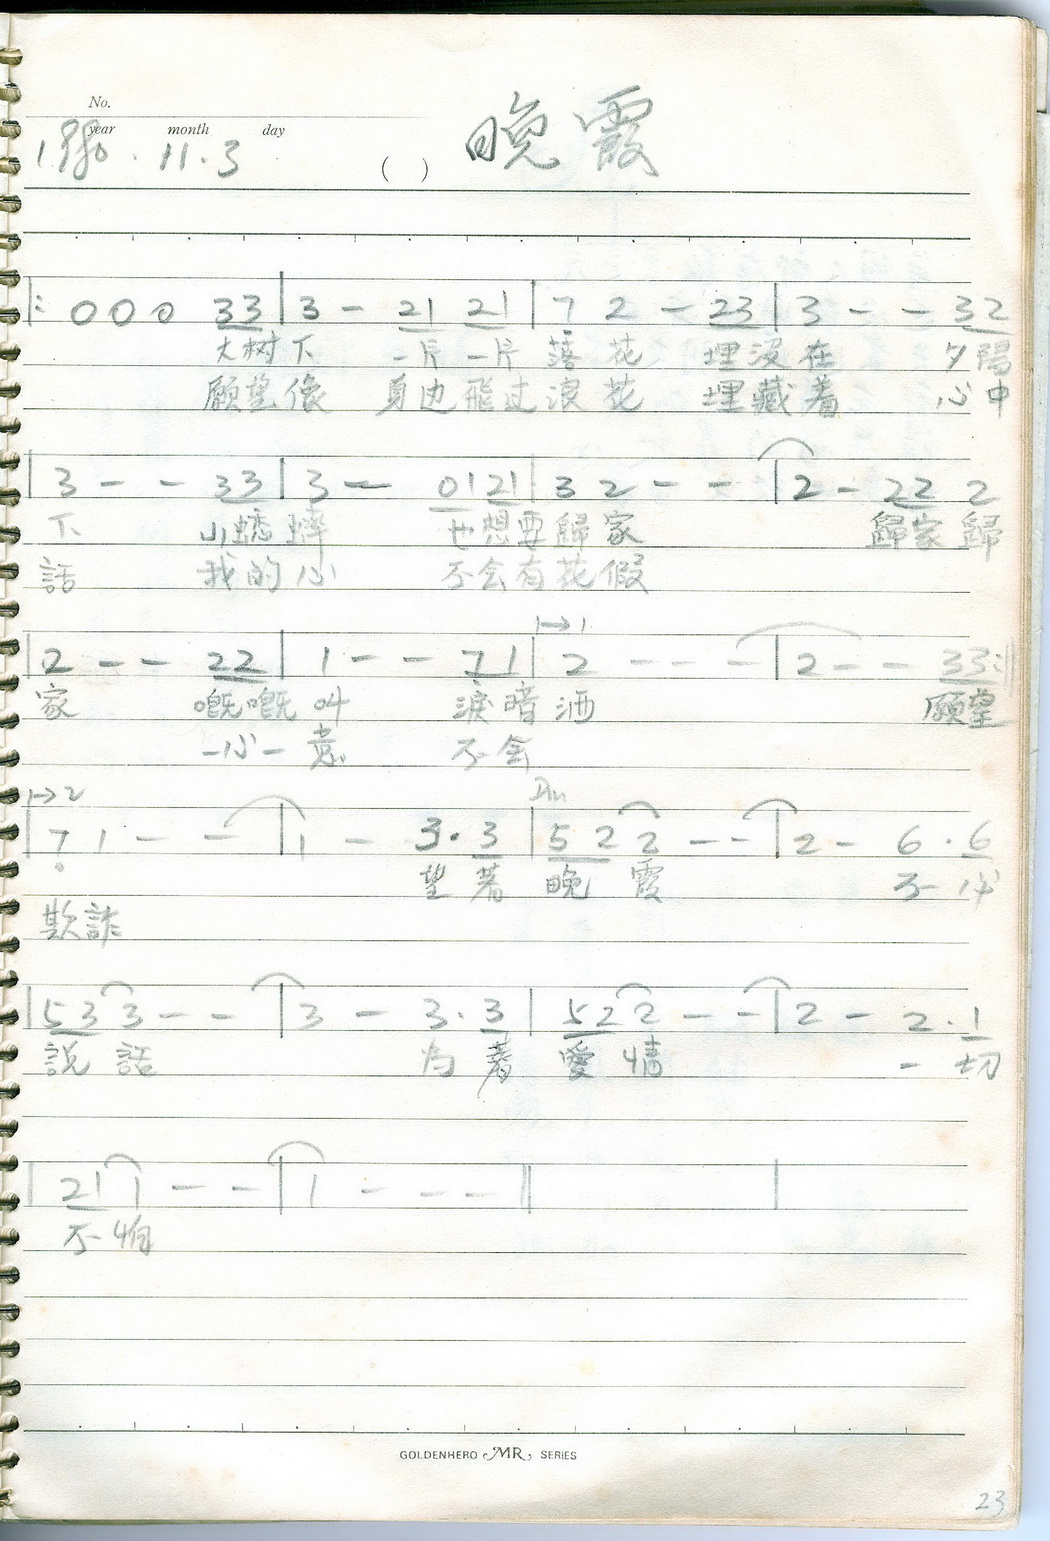 No.
晚霞
year month day
1980.11.3 ( )
|: 0 0 0 33 | 3 - 21 21 | 7 2 - 23 | 3 - - 32
大树下 一片 一片 落花 埋没在 夕陽
願望像 身边飛过浪花 埋藏着 心中
| 3 - - 33 | 3 - 01 21 | 3 2 - - | 2 - 22 2
下 山蟋蟀 也想要歸家 歸家歸
話 我的心 不会有花假
1→1
| 2 - - 22 | 1 - - 71 | 2 - - - | 2 - - 33 :||
家 嘅嘅叫 淚暗洒 願望
一心一意 不会
1→2
| 7 1 - - | 1 - 3·3 | 5 2 2 - - | 2 - 6·6
望着 晚霞 不必
欺詐
| 5 3 3 - - | 3 - 3·3 | 5 2 2 - - | 2 - 2·1
説話 为着 愛情 一切
| 2 1 1 - - | 1 - - - ||
不怕
GOLDENHERO MR SERIES
23